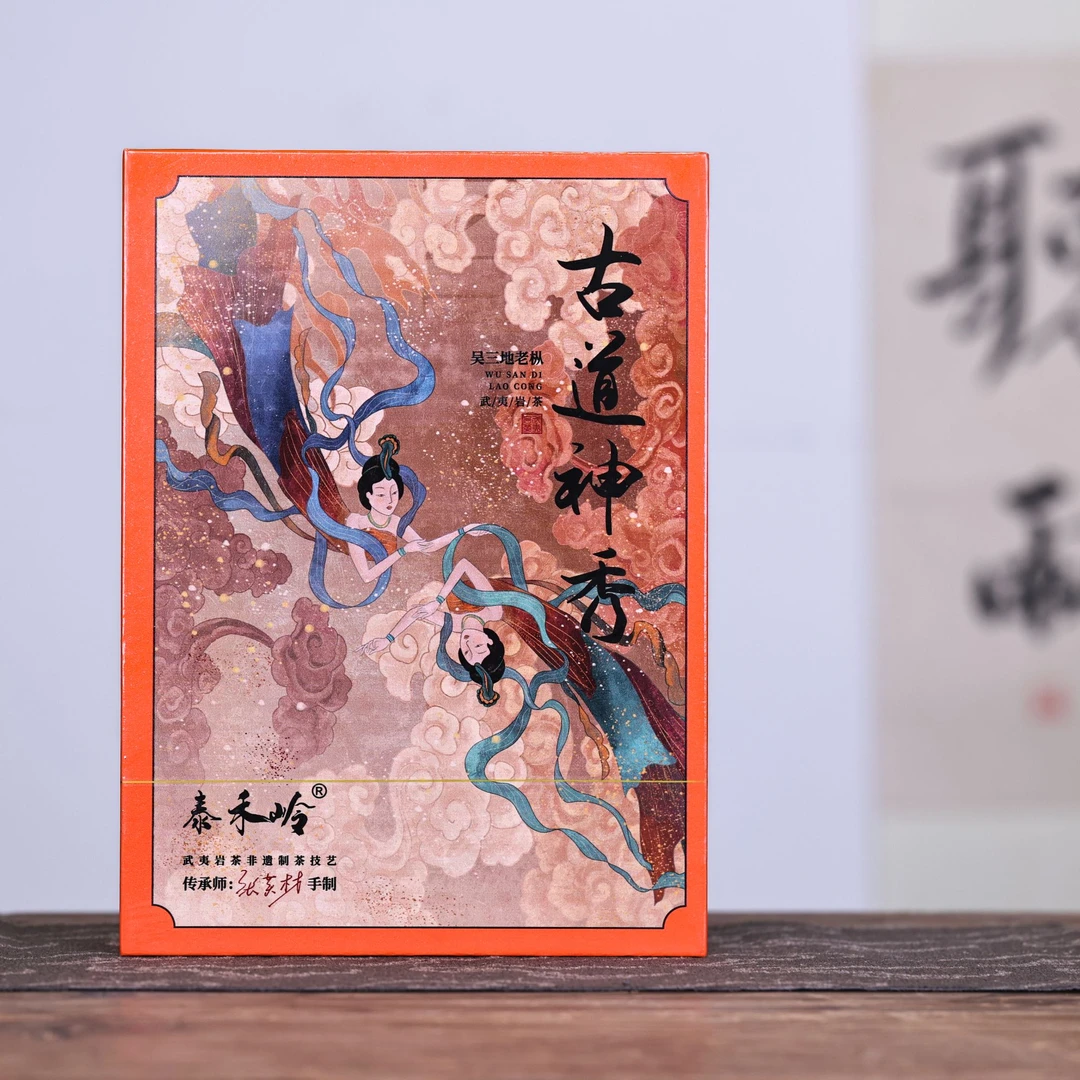 古道神秀
吴三地老枞
WU SAN DI
LAO CONG
武/夷/岩/茶
泰禾岭®
武夷岩茶非遗制茶技艺
传承师: 手制